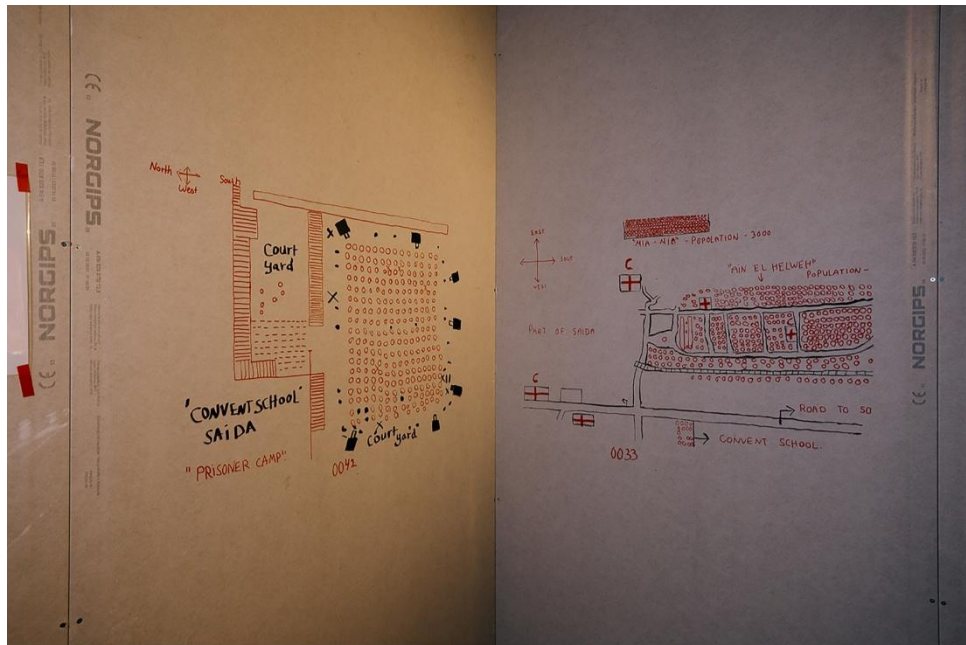 NORGIPS
NORGIPS
North
South
West
Court
yard
'CONVENT SCHOOL'
SAIDA
"PRISONER CAMP"
0042
XII
Court yard
EAST
"MIA - MIA" - POPOLATION - 3000
C
"AIN EL HELWEH"
POPULATION -
PART OF SAIDA
C
ROAD TO SO
CONVENT SCHOOL
0033
NORGIPS